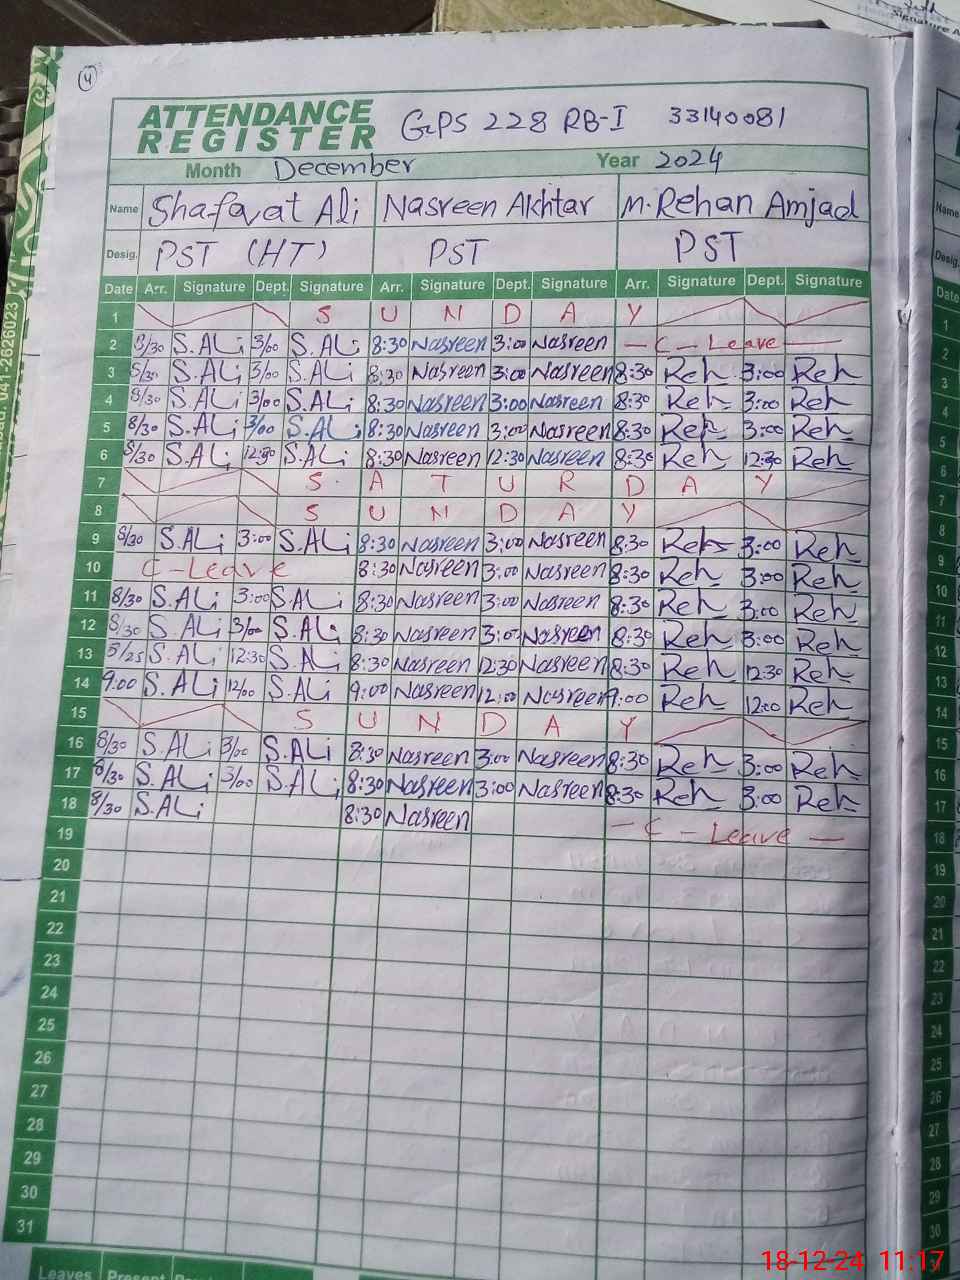 4
ATTENDANCE
REGISTER GPS 228 RB-I 33140081
Month December Year 2024
Name Shafawat Ali Nasreen Akhtar M.Rehan Amjad
Desig. PST (HT) PST PST
Date Arr. Signature Dept. Signature Arr. Signature Dept. Signature Arr. Signature Dept. Signature
1 S U N D A Y
2 8/30 S.ALi 3/00 S.ALi 8:30 Nasreen 3:00 Nasreen - C - Leave -
3 8/30 S.ALi 3/00 S.ALi 8:30 Nasreen 3:00 Nasreen 8:30 Reh 3:00 Reh
4 8/30 S.ALi 3/00 S.ALi 8:30 Nasreen 3:00 Nasreen 8:30 Reh 3:00 Reh
5 8/30 S.ALi 3/00 S.ALi 8:30 Nasreen 3:00 Nasreen 8:30 Reh 3:00 Reh
6 8/30 S.ALi 12:30 S.ALi 8:30 Nasreen 12:30 Nasreen 8:30 Reh 12:30 Reh
7 S A T U R D A Y
8 S U N D A Y
9 8/30 S.ALi 3:00 S.ALi 8:30 Nasreen 3:00 Nasreen 8:30 Reh 3:00 Reh
10 C-Leave 8:30 Nasreen 3:00 Nasreen 8:30 Reh 3:00 Reh
11 8/30 S.ALi 3:00 S.ALi 8:30 Nasreen 3:00 Nasreen 8:30 Reh 3:00 Reh
12 8/30 S.ALi 3/00 S.ALi 8:30 Nasreen 3:00 Nasreen 8:30 Reh 3:00 Reh
13 S.ALi 12:30 S.ALi 8:30 Nasreen 12:30 Nasreen 8:30 Reh 12:30 Reh
14 9:00 S.ALi 12/00 S.ALi 9:00 Nasreen 12:00 Nasreen 9:00 Reh 12:00 Reh
15 S U N D A Y
16 8/30 S.ALi 3/00 S.ALi 8:30 Nasreen 3:00 Nasreen 8:30 Reh 3:00 Reh
17 8/30 S.ALi 3/00 S.ALi 8:30 Nasreen 3:00 Nasreen 8:30 Reh 3:00 Reh
18 8/30 S.ALi 8:30 Nasreen - C - Leave -
19
20
21
22
23
24
25
26
27
28
29
30
31
Leaves Present
Signature
041-2626023
Name
Desig.
Date
1
2
3
4
5
6
7
8
9
10
11
12
13
14
15
16
17
18
19
20
21
22
23
24
25
26
27
28
29
30
18-12-24 11:17